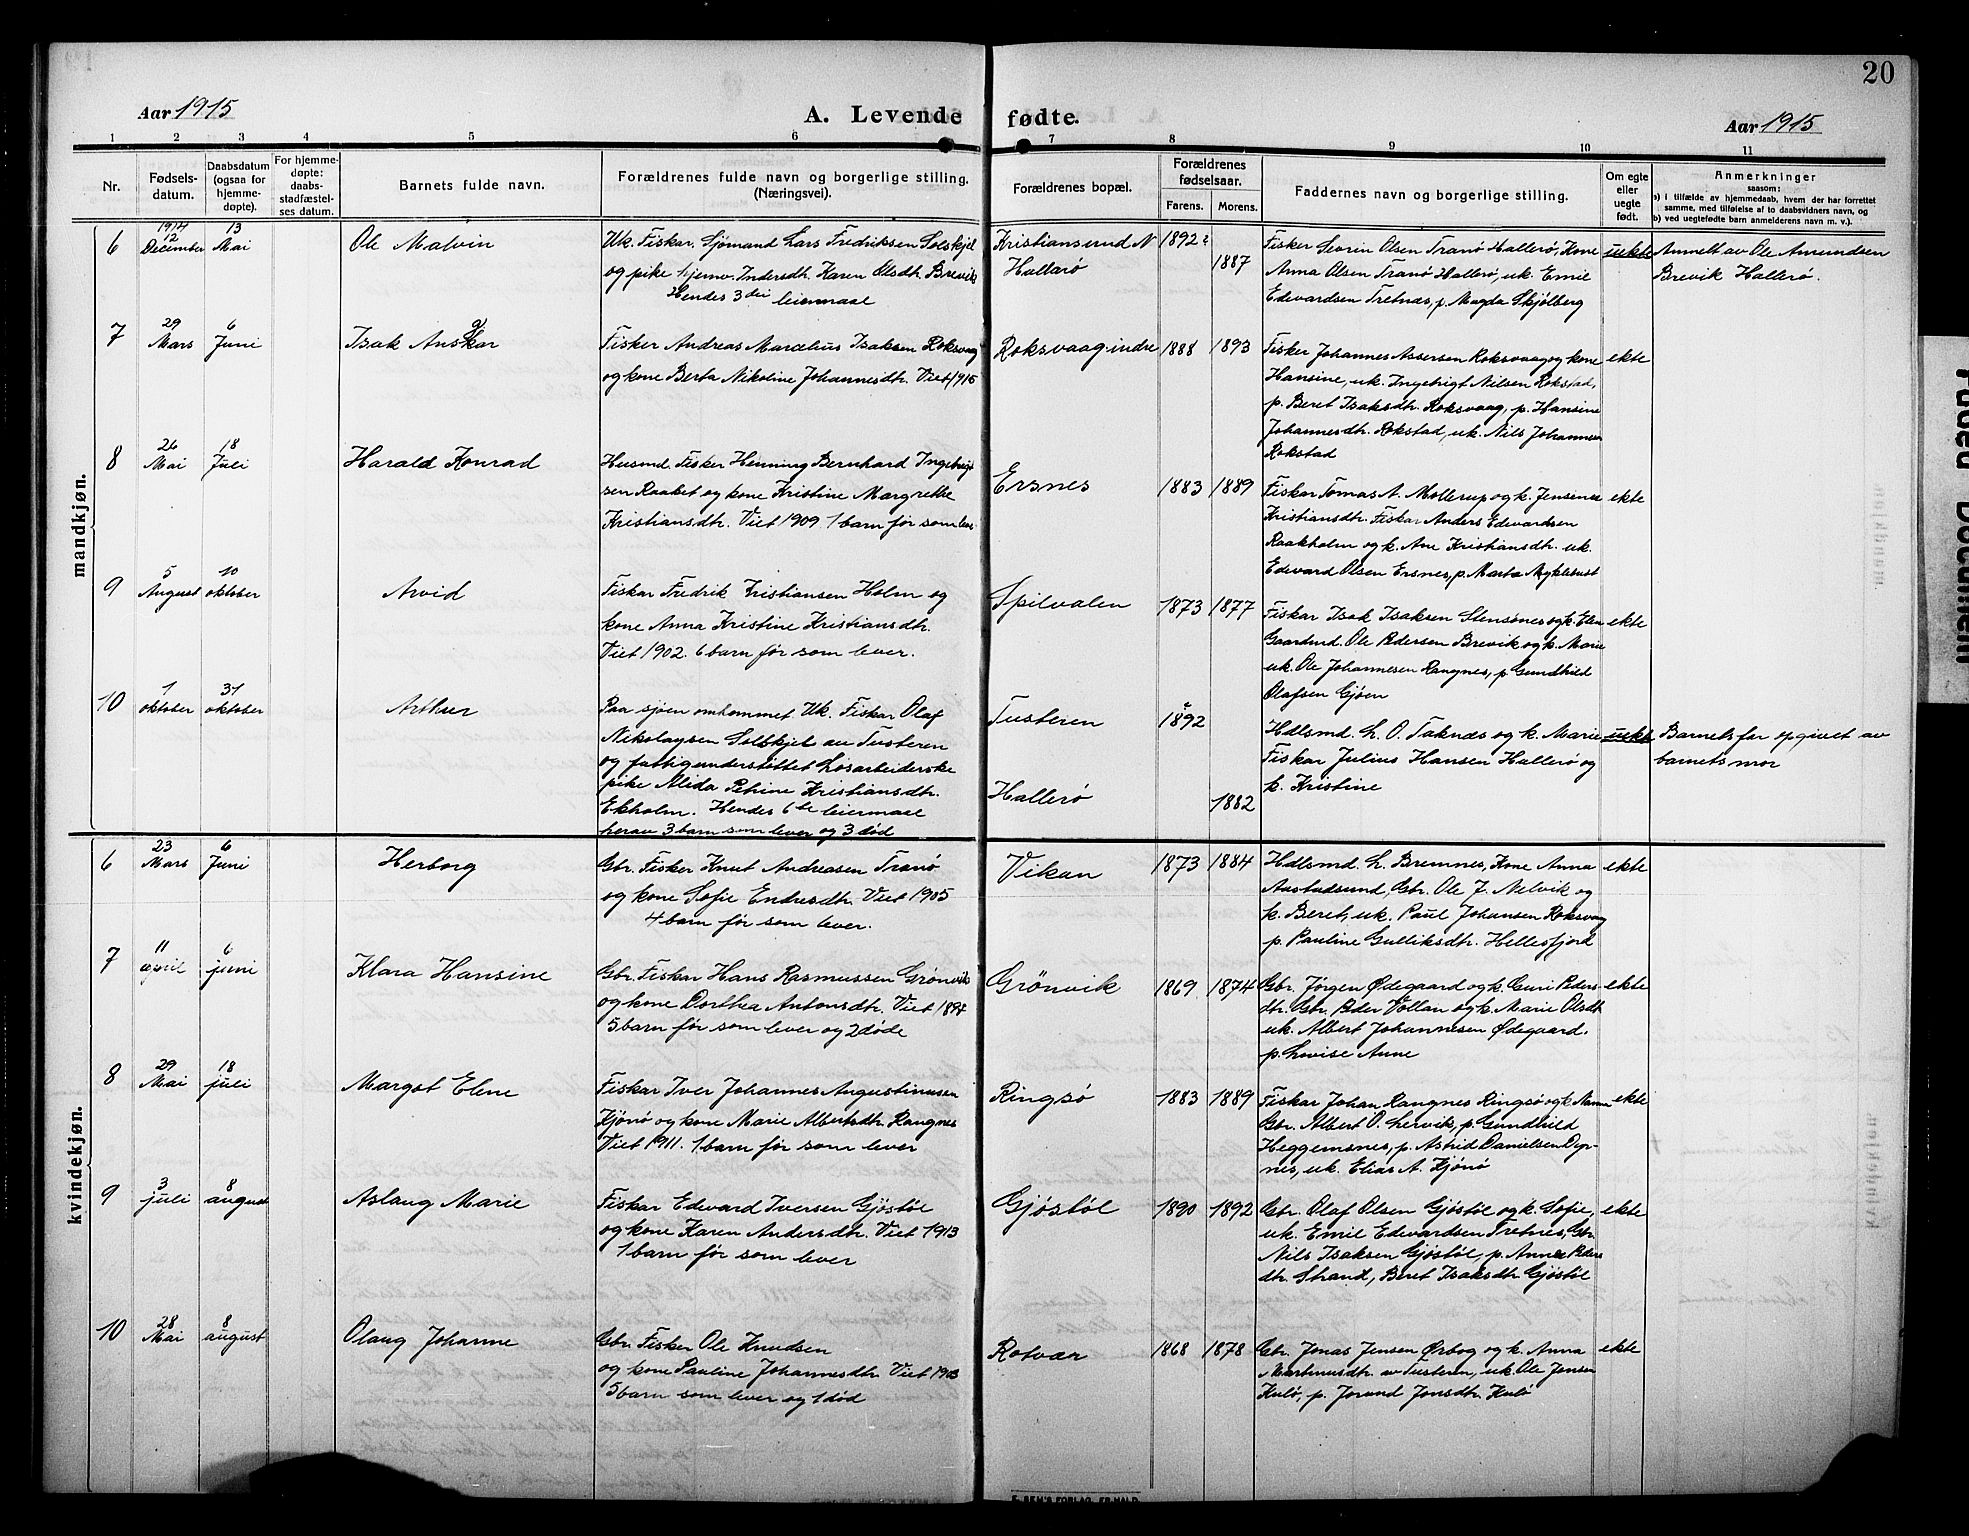 20
Aar 1915
A. Levende fødte.
Aar 1915
1 2 3 4 5 6 7 8 9 10 11
Nr.
Fødsels-
datum.
Daabsdatum
(ogsaa for
hjemme-
døpte).
For hjemme-
døpte:
daabs-
stadfæstel-
ses datum.
Barnets fulde navn.
Forældrenes fulde navn og borgerlige stilling.
(Næringsvei).
Forældrenes bopæl.
Forældrenes
fødselsaar.
Farens. Morens.
Faddernes navn og borgerlige stilling.
Om egte
eller
uegte
født.
Anmerkninger
saasom:
a) i tilfælde av hjemmedaab, hvem der har forrettet
samme, med tilføielse af to daabsvidners navn, og
b) ved uegtefødte barn anmelderens navn m. v.).
mandkjøn.
6
1914
12
December
13
Mai
Ole Malvin
Uk. Fisker. Sjømand Lars Fredriksen Solskjel
og pike hjemv. Indersdh. Karen Olsdh. Brevik
Hendes 3die leiermaal
Kristiansund N
Hallerø
1892?
1887
Fisker Sevrin Olsen Tranø Hallerø, Kone
Anna Olsen Tranø Hallerø, uk. Emil
Edevardsen Tretnæs, p. Magda Skjølberg
uekte
Anmelt av Ole Amundsen
Brevik Hallerø.
7
29
Mars
6
Juni
Isak Anskar
Fisker Andreas Marcelius Isaksen Roksvaag
og kone Berta Nikoline Johannesdh. Viet 1915
Roksvaag indre
1888
1893
Fisker Johannes Assersen Roksvaag og kone
Hansine, uk. Ingebrigt Nilsen Rokstad,
p. Beret Isaksdh. Roksvaag, p. Hansine
Johannesdh. Rokstad, uk. Nils Johannsen
Rokstad
ekte
8
26
Mai
18
Juli
Harald Konrad
Husmd. Fisker Henning Bernhard Ingebrigt
sen Raaket og kone Kristine Margrethe
Kristiansdh. Viet 1909 1 barn før som lever
Ersnes
1883
1889
Fiskar Tomas A. Mollerup og k. Jensine
Kristiansdh. Fiskar Anders Edevardsen
Raakholm og k. Ane Kristiansdh. uk.
Edevard Olsen Ersnes, p. Marta Myklebust
ekte
9
5
August
10
oktober
Arvid
Fiskar Fredrik Kristiansen Holm og
kone Anna Kristine Kristiansdh.
Viet 1902. 6 barn før som lever.
Spilvalen
1873
1877
Fiskar Isak Isaksen Stensønes og k. Elen
Gaardmd. Ole Pedersen Brevik og k. Marie
uk. Ole Johannesen Rangnes, p. Gundhild
Olafsen Gjøen
ekte
10
1
oktober
31
oktober
Arthur
Paa sjøen omkommet Uk. Fiskar Olaf
Nikolaysen Solskjel av Tusteren
og fattigunderstøttet Løsarbeiderske
pike Alida Petrine Kristiansdh.
Ekholm. Hendes 6te leiermaal
herav 3 barn som lever og 3 død
Tusteren
Hallerø
1892
1882
Hdlsmd. L. O. Taknæs og k. Marie
Fiskar Julius Hansen Hallerø og
k. Kristine
uekte
Barnets far opgivet av
barnets mor
kvindekjøn.
6
23
Mars
6
Juni
Herborg
Gbr. Fisker Knut Andreasen Tranø
og kone Sofie Endresdh. Viet 1905
4 barn før som lever.
Vikan
1873
1884
Hdlsmd. L. Bremnes, Kone Anna
Aastadsund, Gbr. Ole J. Nelvik og
k. Beret, uk. Paul Johansen Roksvaag
p. Pauline Gulliksdh. Hellesfjord
ekte
7
11
april
6
juni
Klara Hansine
Gbr. Fiskar Hans Rasmussen Grønvik
og kone Dorthea Antonsdh. Viet 1894
5 barn før som lever og 2 døde
Grønvik
1869
1874
Gbr. Jørgen Ødegaard og k. Guri Peders-
dh. Gbr. Peder Vollan og k. Marie Olsdh
uk. Albert Johannesen Ødegaard.
p. Lovise Anne
ekte
8
29
Mai
18
juli
Margot Elene
Fiskar Iver Johannes Augustinusen
Kjønø og kone Marie Albertsdh. Rangnes
Viet 1911. 1 barn før som lever
Ringsø
1883
1889
Fiskar Johan Rangnes Ringsø og k. Nanna
Gbr. Albert O. Lervik, p. Gundhild
Heggemsnes, p. Astrid Danielsen Dyr-
nes, uk. Elias A. Kjønø
ekte
9
3
juli
8
august
Aslaug Marie
Fiskar Edevard Iversen Gjøstøl
og kone Karen Andersdh. Viet 1913
1 barn før som lever
Gjøstøl
1890
1892
Gbr. Olaf Olsen Gjøstøl og k. Sofie,
uk. Emil Edevardsen Tretnes, Gbr.
Nils Isaksen Gjøstøl, p. Anne Peders
dh. Strand, Beret Isaksdh Gjøstøl
ekte
10
28
Mai
8
august
Olaug Johanne
Gbr. Fisker Ole Knudsen
og kone Pauline Johannesdh. Viet 1903
5 barn som lever og 1 død
Rotvær
1868
1878
Gbr. Jonas Jensen Ørbog og k. Anna
Martinusdh. av Tusteren, uk. Ole Jensen
Kulø, p. Jorund Jonsdh. Kulø
ekte